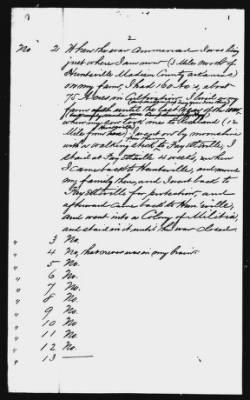 2
No 2 When the war commenced I was living
just where I am now (3 miles north of
Huntsville Madison County arkansas
on my farm, I had 160 Acres, about
75 Acres in Cultivation, I lived on my
farm until the last days of the War,
when my son took me to
mile from here) I crept out by moonshine
with a walking stick to Fayetteville, I
staid at Fayetteville 4 weeks, when
I came back to Huntsville, and moved
my family there, and I went back to
Fayetteville for protection, and
afterward came back to Huntsville,
and went into a Colony of Militia,
and staid in it until the war closed.
" 3 No.
" 4 No, that never was in my brain
" 5 No.
" 6 No.
" 7 No.
" 8 No.
" 9 No.
" 10 No.
" 11 No.
" 12 No.
" 13